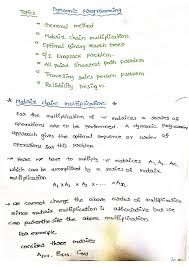 Topics Dynamic Programming
* General method
* Matrix chain multiplication
* Optimal binary search trees
* 0/1 knapsack problem
* All pairs shortest path problem
* Travelling sales person problem
* Reliability Design.
* Matrix chain multiplication:-
For the multiplication of matrices a series of
operations are to be performed. A dynamic programming
approach gives the optimal sequence or order of
operations for this problem.
Here we have to multiply 'n' matrices A1, A2, A3, ... An,
which can be accomplished by a series of matrix
multiplication
A1 x A2 x A3 x ... An
we cannot change the above order of multiplication
since matrix multiplication is associative but we
can parenthesize the above multiplication.
For example,
consider three matrices